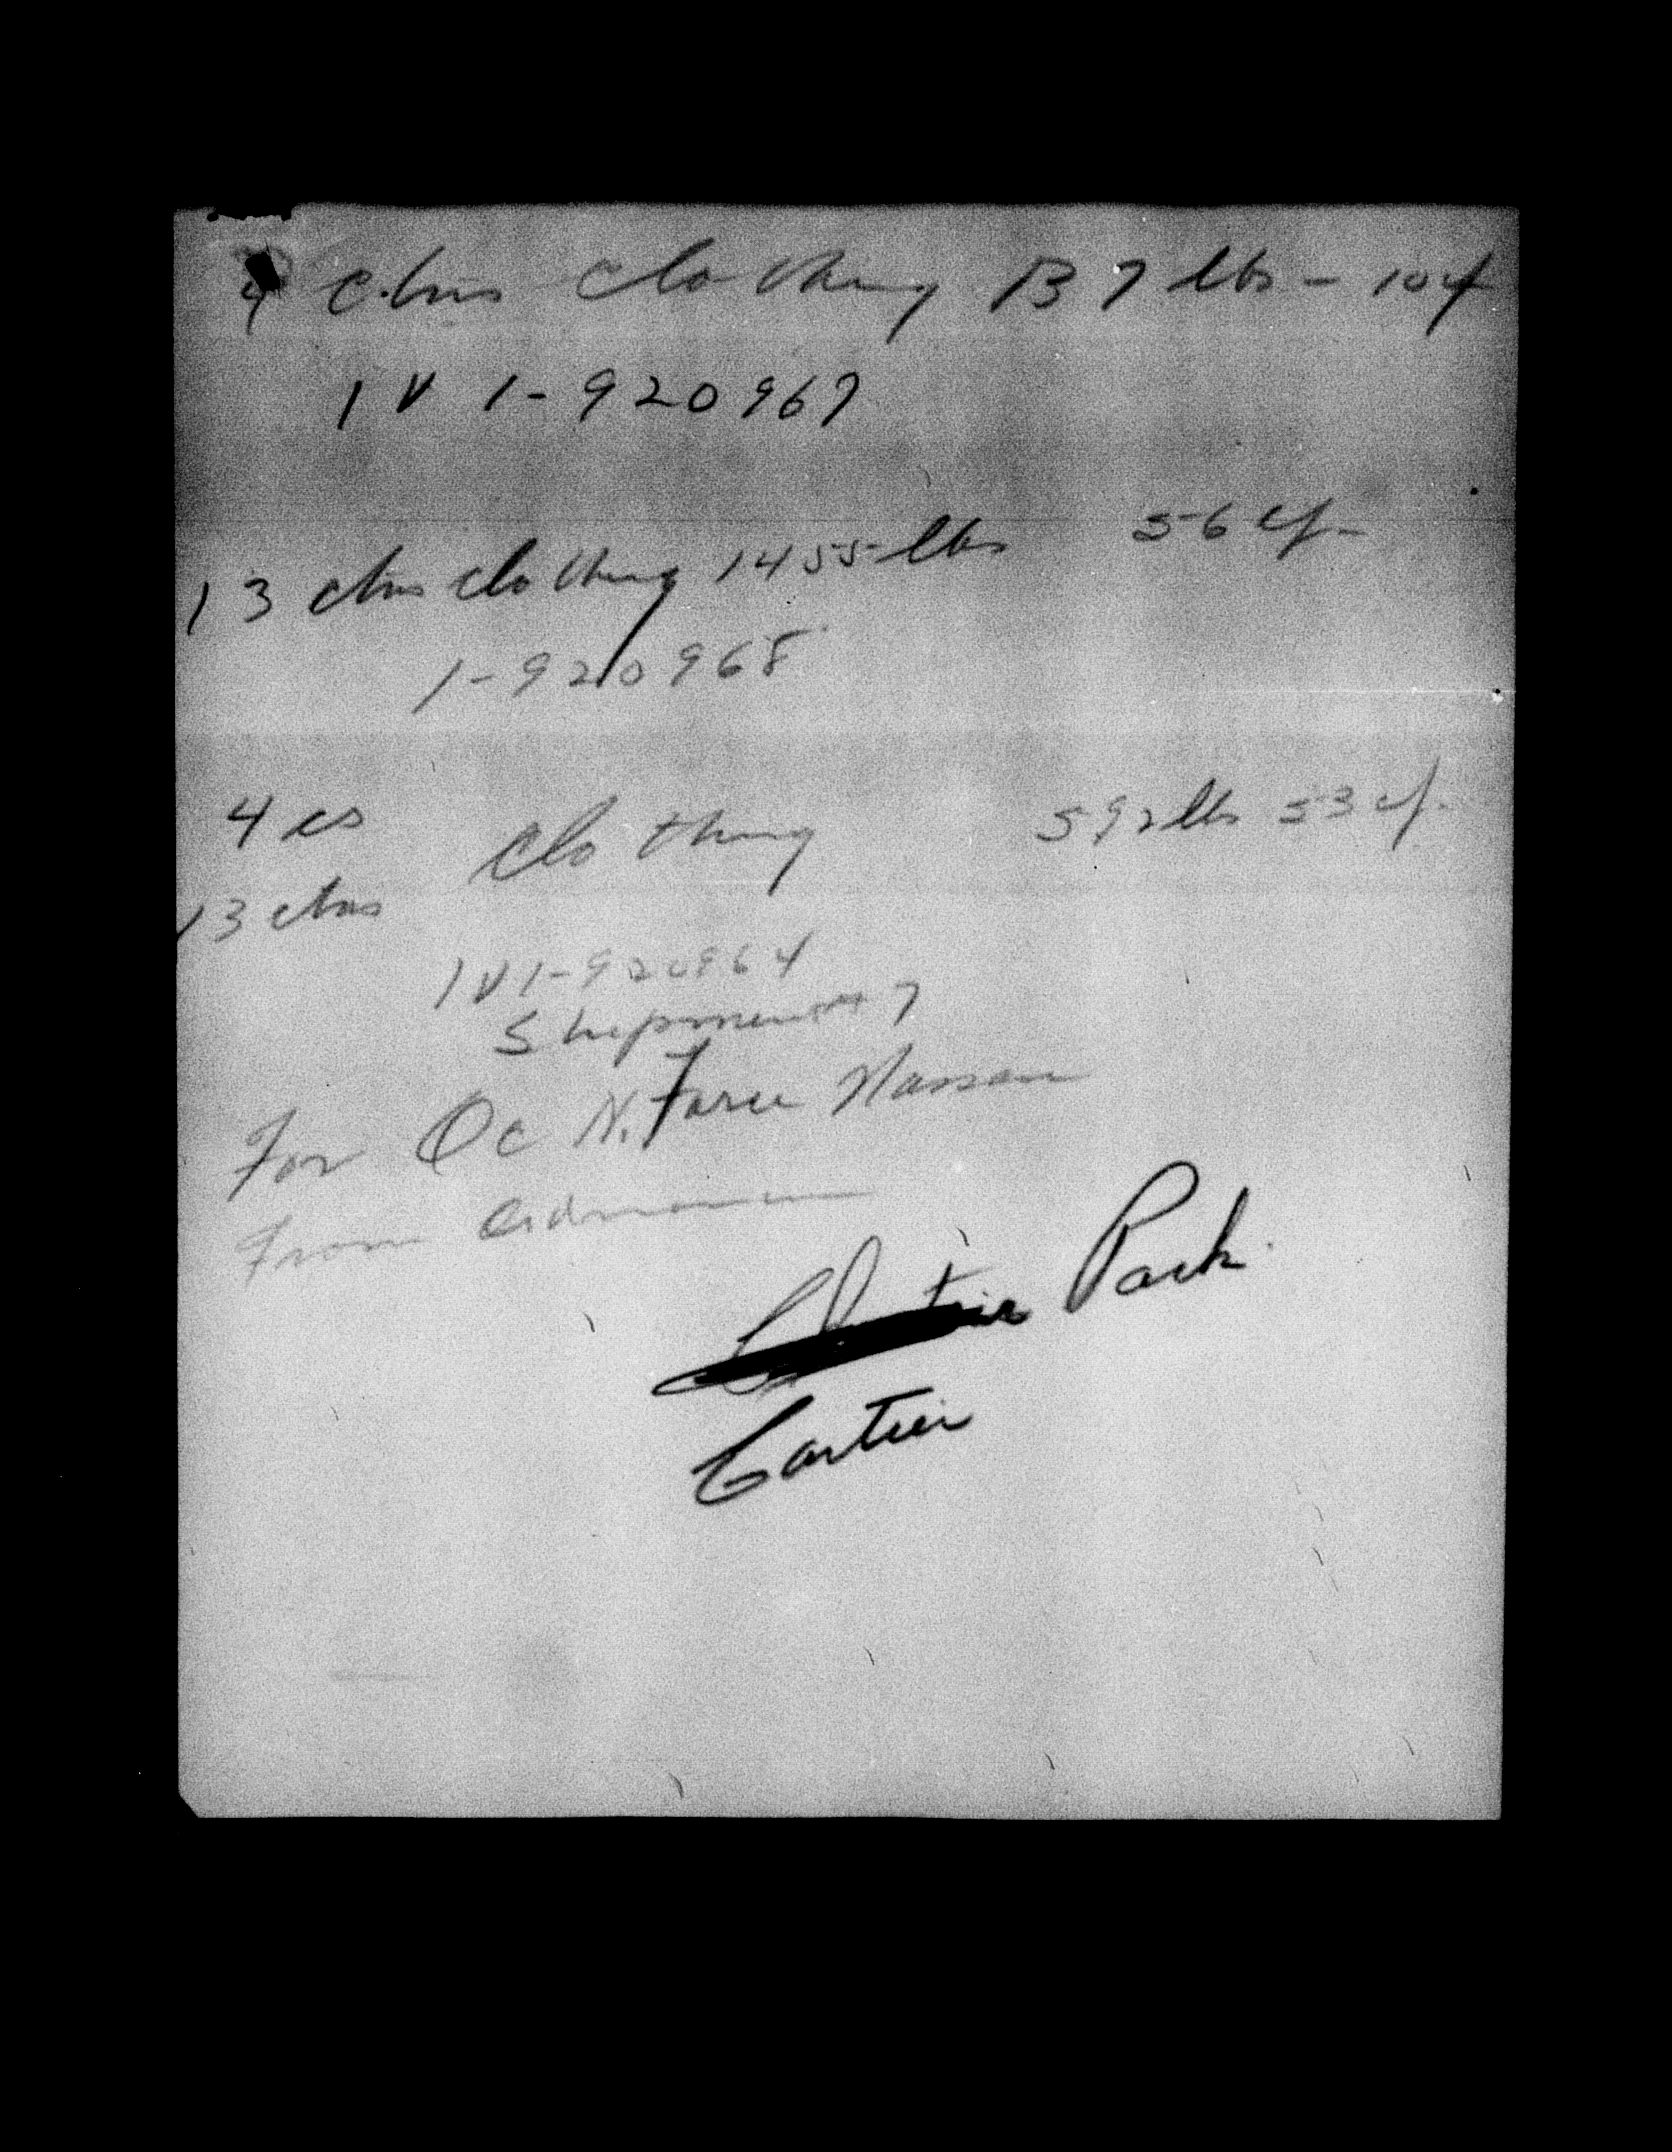 4 ctns clothing 137 lbs - 10 cf
IV 1-920967
13 ctns clothing 1455 lbs 56 cf.
1-920968
4 cs clothing 592 lbs 53 cf.
13 ctns
IV 1-920964
Shipment # 7
For Oc N. Force Nassau
From
Park
Cartier